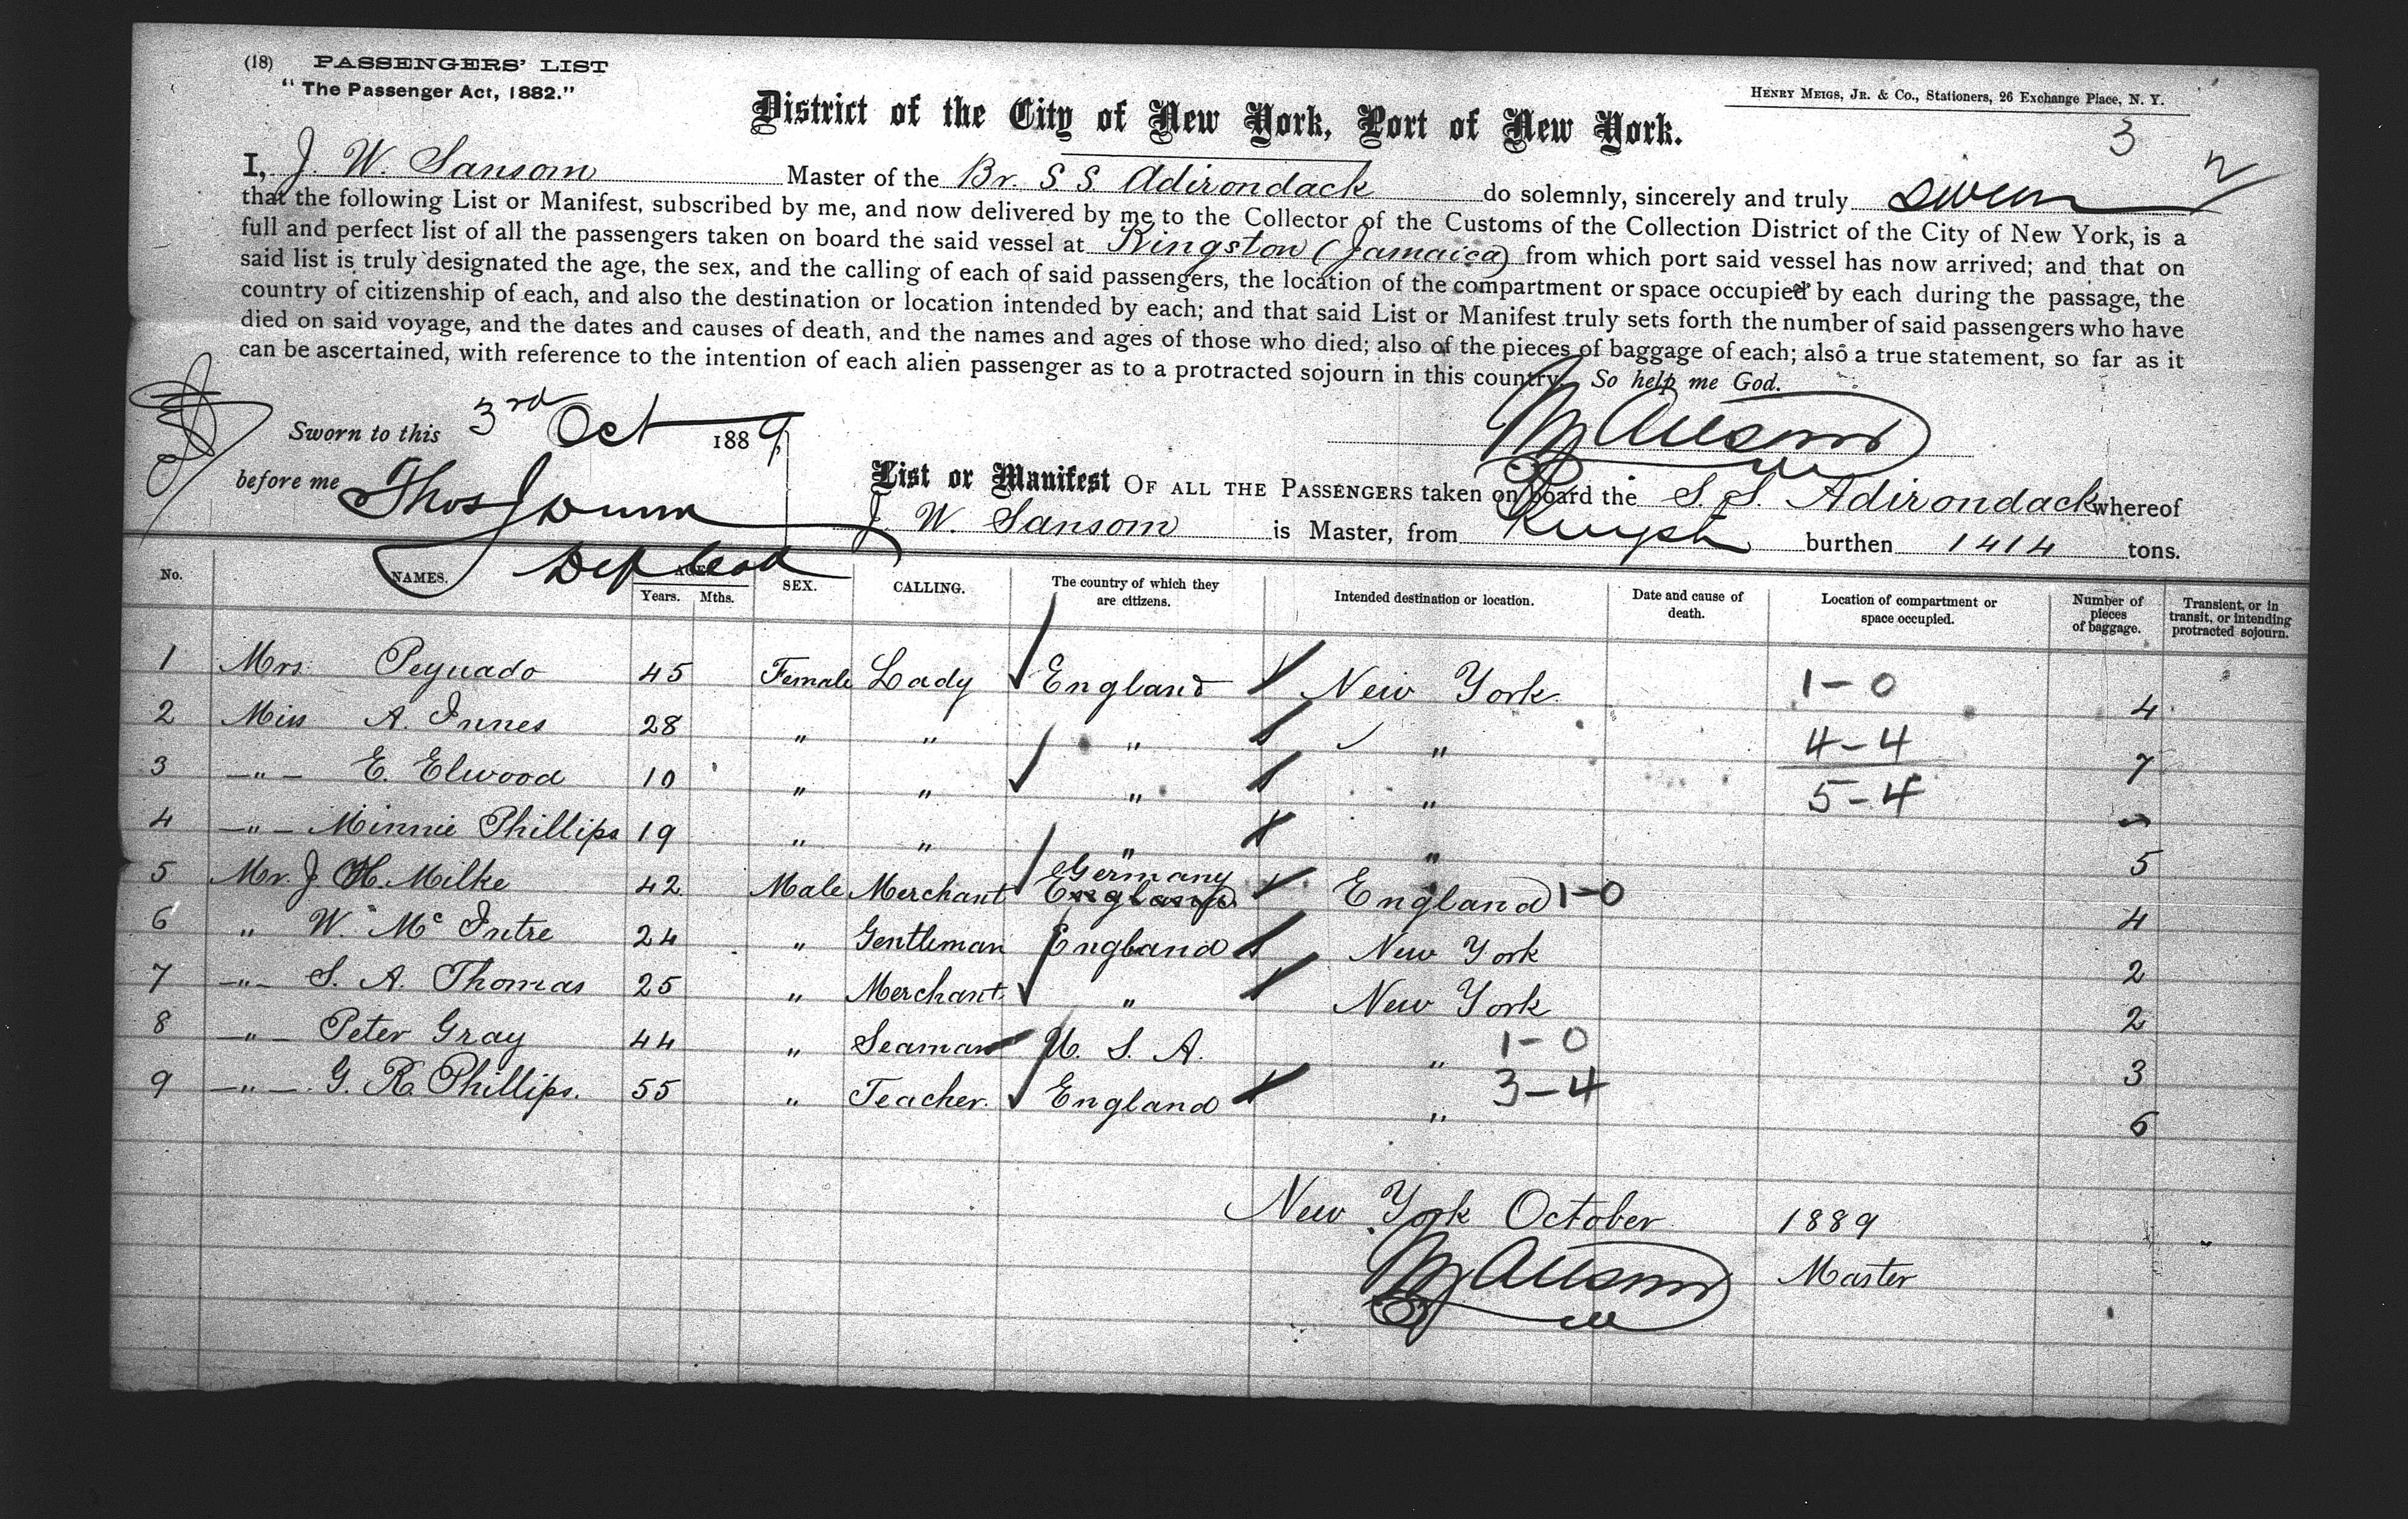 (18) PASSENGERS' LIST
" The Passenger Act, 1882."
HENRY MEIGS, JR. & CO., Stationers, 26 Exchange Place, N. Y.
District of the City of New York, Port of New York.
3
I, J. W. Sansom Master of the Br. S S Adirondack do solemnly, sincerely and truly swear
that the following List or Manifest, subscribed by me, and now delivered by me to the Collector of the Customs of the Collection District of the City of New York, is a
full and perfect list of all the passengers taken on board the said vessel at Kingston (Jamaica) from which port said vessel has now arrived; and that on
said list is truly designated the age, the sex, and the calling of each of said passengers, the location of the compartment or space occupied by each during the passage, the
country of citizenship of each, and also the destination or location intended by each; and that said List or Manifest truly sets forth the number of said passengers who have
died on said voyage, and the dates and causes of death, and the names and ages of those who died; also of the pieces of baggage of each; also a true statement, so far as it
can be ascertained, with reference to the intention of each alien passenger as to a protracted sojourn in this country. So help me God.
Sworn to this 3rd Oct 1889
before me Thos J Dunn
Dep
List or Manifest OF ALL THE PASSENGERS taken on board the S. S. Adirondack whereof
J. W. Sansom is Master, from Kingston burthen 1414 tons.
No. NAMES. AGE. Years. Mths. SEX. CALLING. The country of which they are citizens. Intended destination or location. Date and cause of death. Location of compartment or space occupied. Number of pieces of baggage. Transient, or in transit, or intending protracted sojourn.
1 Mrs. Peynado 45 Female Lady England New York 1-0 4
2 Miss A. Innes 28 " " " " 4-4 7
3 -"- E. Elwood 10 " " " " 5-4
4 -"- Minnie Phillips 19 " " " " 5
5 Mr. J. H. Milke 42 Male Merchant Germany England England 1-0 4
6 " W. Mc Intre 24 " Gentleman England New York 2
7 -"- S. A. Thomas 25 " Merchant " New York 2
8 -"- Peter Gray 44 " Seaman U. S. A. " 1-0 3
9 -"- G. R. Phillips. 55 " Teacher. England " 3-4 6
New York October 1889
Master